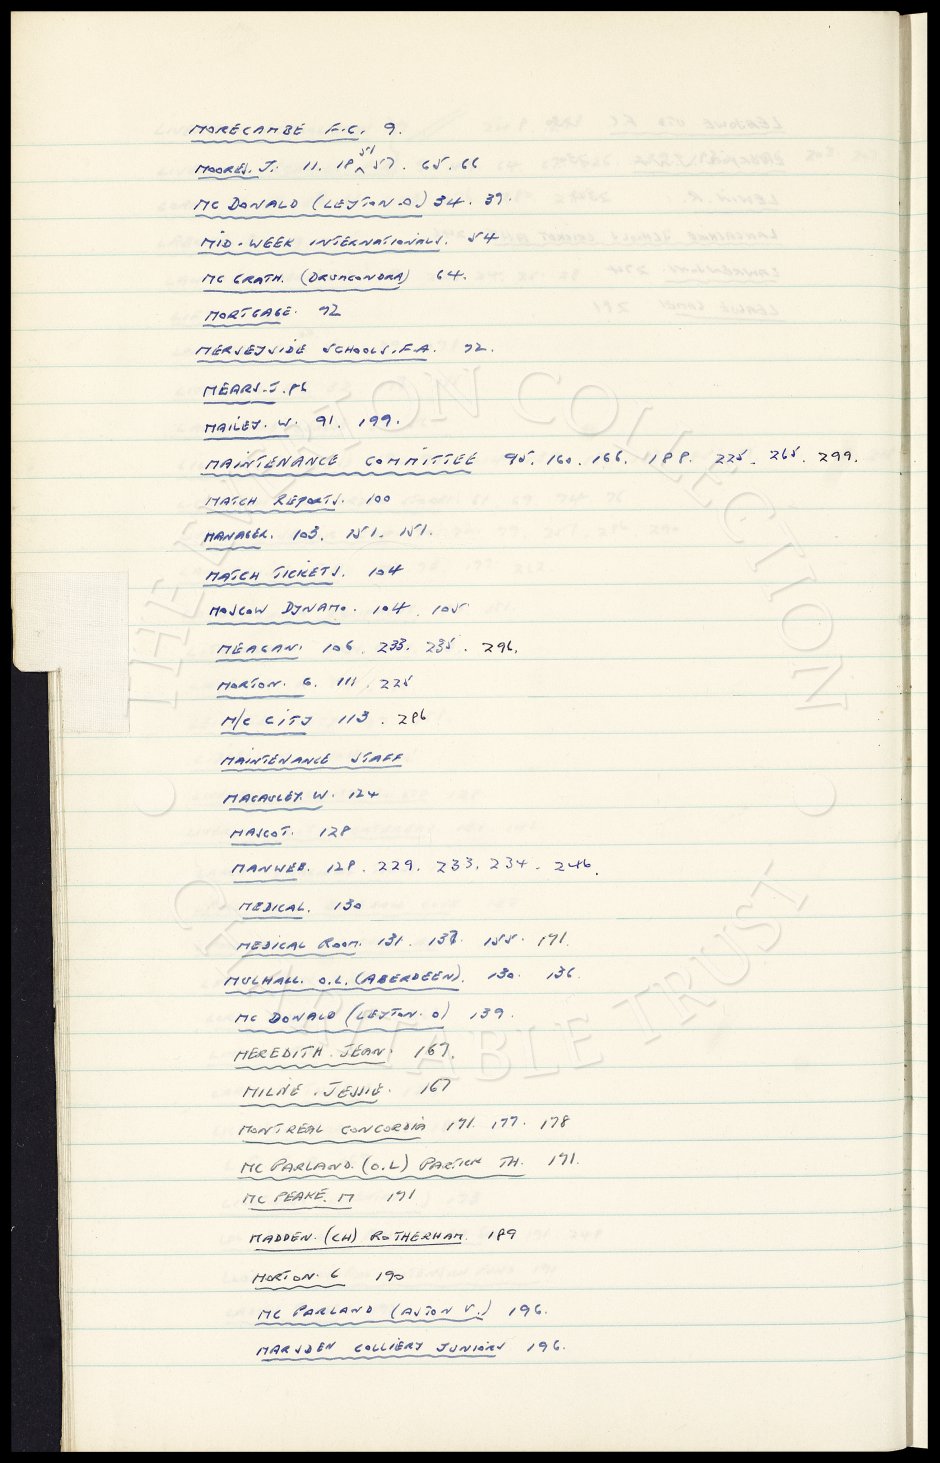 MORECAMBE F.C. 9.
MOORES. J. 11. 18 ^51 57. 65. 66
MC DONALD (LEYTON O.) 34. 39.
MID-WEEK INTERNATIONALS. 54
MC GRATH. (DRUMCONDRA) 64.
MORTGAGE. 72
MERSEYSIDE SCHOOLS. F.A. 72.
MEARS. J. 86
MAILEY. W. 91. 199.
MAINTENANCE COMMITTEE 95. 160. 166. 188. 225. 265. 299.
MATCH REPORTS. 100
MANAGER. 103. 151. 151.
MATCH TICKETS. 104
MOSCOW DYNAMO. 104. 105
MEAGAN. 106. 233. 235. 296.
MORTON. G. 111. 225
M/C CITY 113. 286
MAINTENANCE STAFF
MACAULEY. W. 124
MASCOT. 128
MANWEB. 128. 229. 233. 234. 246.
MEDICAL. 130
MEDICAL ROOM. 131. 138. 155. 171.
MULHALL. O.L. (ABERDEEN). 130. 136.
MC DONALD (LEYTON. O) 139.
MEREDITH. JEAN. 167.
MILNE. JESSIE. 167
MONTREAL CONCORDIA 171. 177. 178
MC PARLAND. (O.L) PARTICK TH. 171.
MC PEAKE. M 171
MADDEN. (CH) ROTHERHAM. 189
MORTON. G 190
MC PARLAND (ASTON V.) 196.
MARSDEN COLLIERY JUNIORS 196.
THE EVERTON COLLECTION
CHARITABLE TRUST